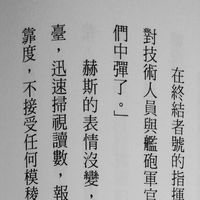 在終結者號的指揮
對技術人員與艦砲軍官
們中彈了。」
赫斯的表情沒變，
臺，迅速掃視讀數，報
靠度，不接受任何模稜